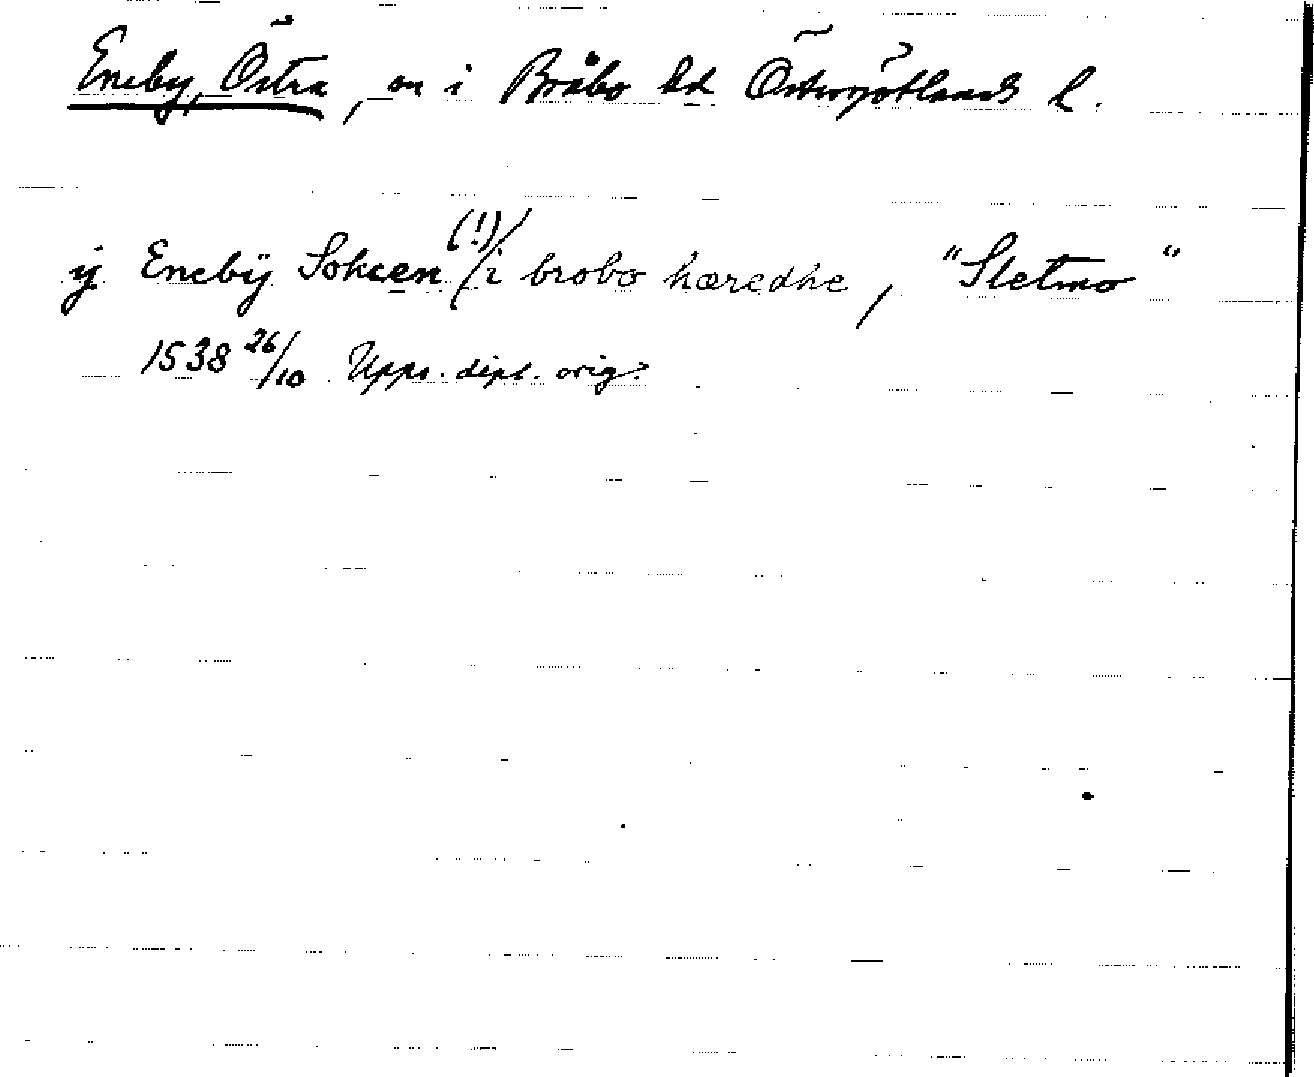 Eneby, Östra, sn i Bråbo hd Östergötlands l.
ij Enebÿ Sokcen (!) / i brobo hæredhe, "Sletmo"
1538 26/10 Upps. dipl. orig.